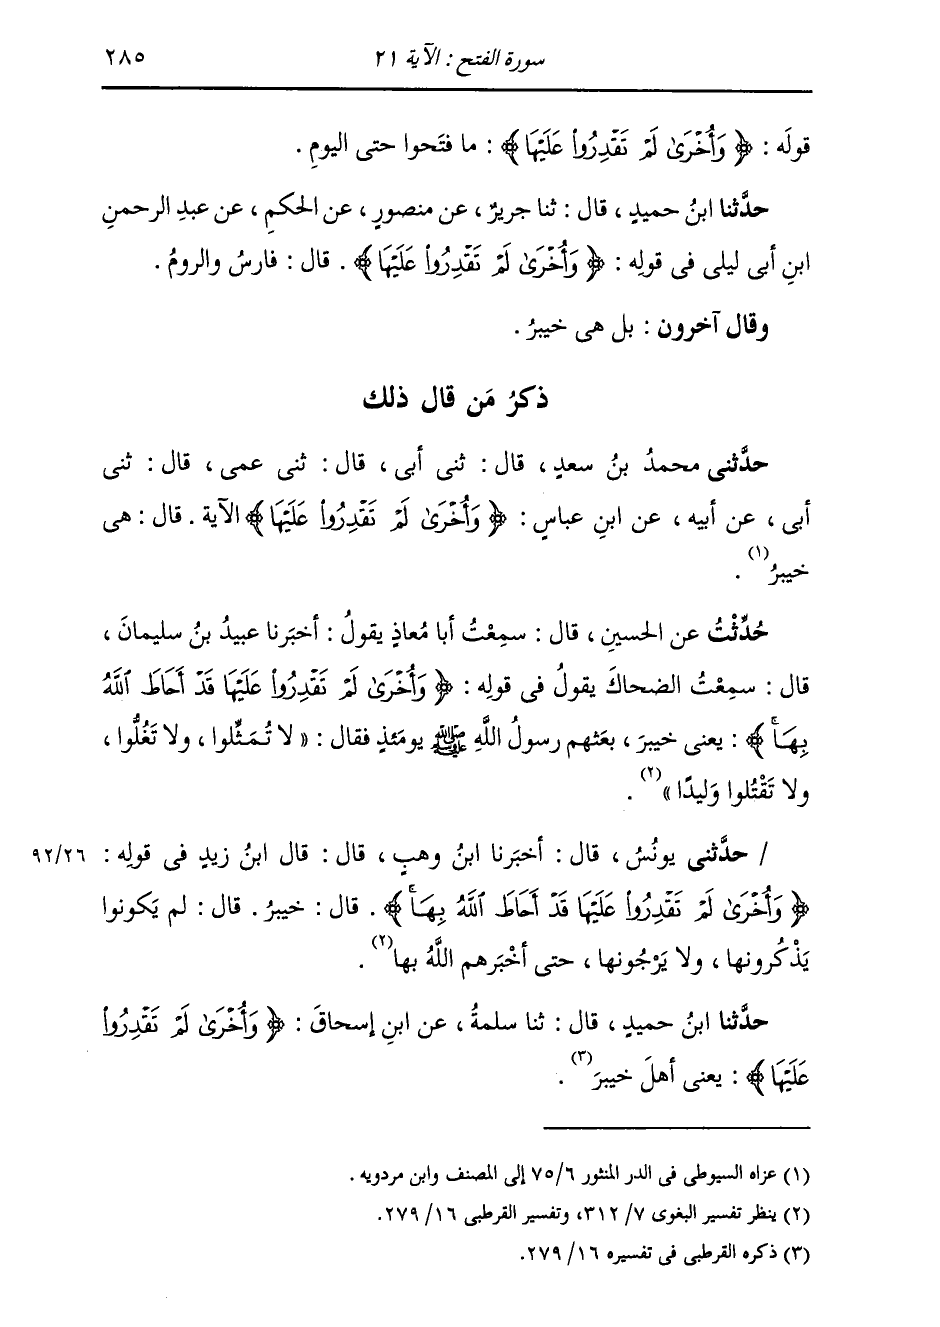 سورة الفتح : الآية ٢١ ٢٨٥
قولَه : ﴿ وَأُخْرَىٰ لَمْ تَقْدِرُوا۟ عَلَيْهَا ﴾ : ما فتَحوا حتى اليومِ .
حدَّثنا ابنُ حميدٍ ، قال : ثنا جريرٌ ، عن منصورٍ ، عن الحكمِ ، عن عبدِ الرحمنِ
ابنِ أبى ليلى فى قولِه : ﴿ وَأُخْرَىٰ لَمْ تَقْدِرُوا۟ عَلَيْهَا ﴾ . قال : فارسُ والرومُ .
وقال آخرون : بل هى خيبرُ .
ذكرُ مَن قال ذلك
حدَّثنى محمدُ بنُ سعدٍ ، قال : ثنى أبى ، قال : ثنى عمى ، قال : ثنى
أبى ، عن أبيه ، عن ابنِ عباسٍ : ﴿ وَأُخْرَىٰ لَمْ تَقْدِرُوا۟ عَلَيْهَا ﴾ الآية . قال : هى
خيبرُ(١) .
حُدِّثْتُ عن الحسينِ ، قال : سمِعْتُ أبا مُعاذٍ يقولُ : أخبَرنا عبيدُ بنُ سليمانَ ،
قال : سمِعْتُ الضحاكَ يقولُ فى قولِه : ﴿ وَأُخْرَىٰ لَمْ تَقْدِرُوا۟ عَلَيْهَا قَدْ أَحَاطَ ٱللَّهُ
بِهَا ۚ ﴾ : يعنى خيبرَ ، بعَثهم رسولُ اللَّهِ ﷺ يومَئذٍ فقال : « لا تُمَثِّلوا ، ولا تَغُلُّوا ،
ولا تَقْتُلوا وَليدًا »(٢) .
/ حدَّثنى يونُسُ ، قال : أخبَرنا ابنُ وهبٍ ، قال : قال ابنُ زيدٍ فى قولِه : ٩٢/٢٦
﴿ وَأُخْرَىٰ لَمْ تَقْدِرُوا۟ عَلَيْهَا قَدْ أَحَاطَ ٱللَّهُ بِهَا ۚ ﴾ . قال : خيبرُ . قال : لم يَكونوا
يَذْكُرونها ، ولا يَرْجُونها ، حتى أخْبَرهم اللَّهُ بها(٢) .
حدَّثنا ابنُ حميدٍ ، قال : ثنا سلمةُ ، عن ابنِ إسحاقَ : ﴿ وَأُخْرَىٰ لَمْ تَقْدِرُوا۟
عَلَيْهَا ﴾ : يعنى أهلَ خيبرَ(٣) .
(١) عزاه السيوطى فى الدر المنثور ٧٥/٦ إلى المصنف وابن مردويه .
(٢) ينظر تفسير البغوى ٧/ ٣١٢، وتفسير القرطبى ١٦/ ٢٧٩.
(٣) ذكره القرطبى فى تفسيره ١٦/ ٢٧٩.